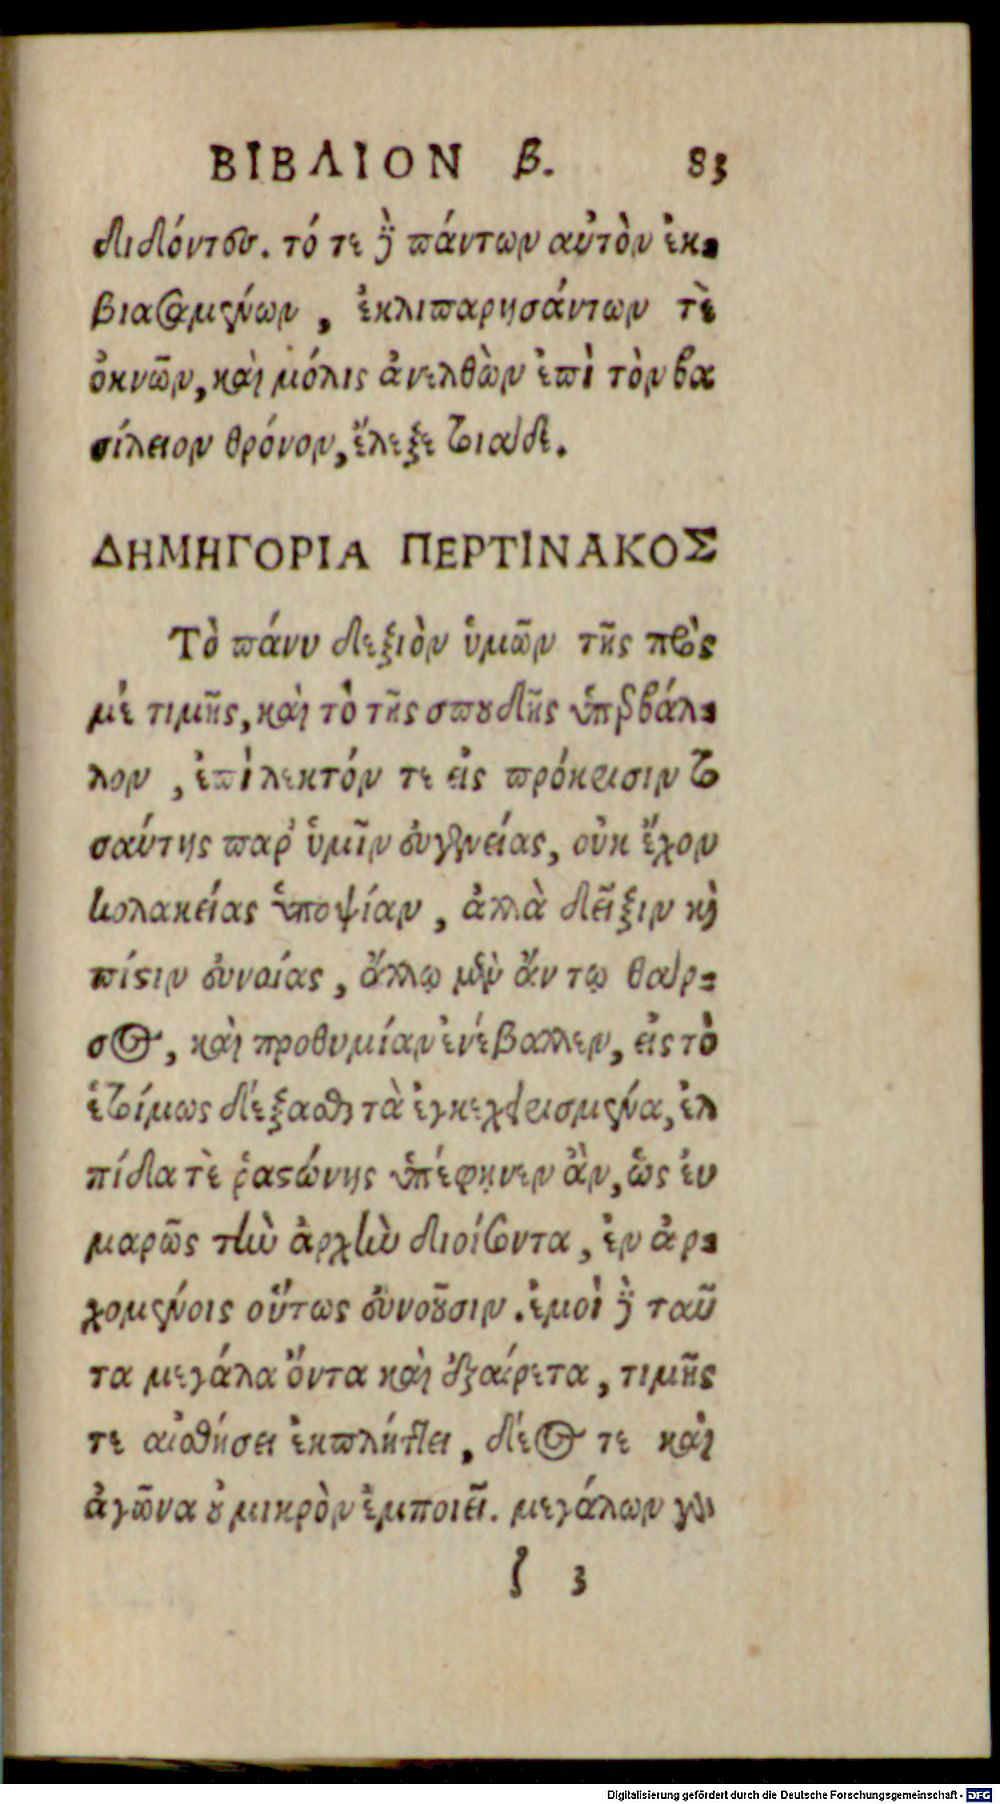 ΒΙΒΛΙΟΝ β. 83
διδόντος. τό τε ἢ πάντων αὐτὸν ἐκ-
βιασαμένων, ἐκλιπαρησάντων τὲ
ὀκνῶν, καὶ μόλις ἀνελθὼν ἐπὶ τὸν βα
σίλειον θρόνον, ἔλεξε τοιαῦδε.
ΔΗΜΗΓΟΡΙΑ ΠΕΡΤΙΝΑΚΟΣ
Τὸ πάνυ δεξιὸν ὑμῶν τῆς πρὸς
μὲ τιμῆς, καὶ τὸ τῆς σπουδῆς ὑπερβάλ-
λον, ἐπίλεκτόν τε εἰς πρόκρισιν το
σαύτης παρ' ὑμῖν εὐγενείας, οὐκ ἔχον
κολακείας ὑποψίαν, ἀλλὰ δεῖξιν καὶ
πίστιν εὐνοίας, ἄλλῳ μὲν ἄν τῳ θαρ-
σος, καὶ προθυμίαν ἐνέβαλλεν, εἰς τὸ
ἑτοίμως δέξασθαι τὰ ἐγκεχειρισμένα, ἐλ
πίδα τὲ ῥαστώνης ὑπέφηνεν ἂν, ὡς εὐ
μαρῶς τὴν ἀρχὴν διοίσοντα, ἐν ἀρ-
χομένοις οὕτως εὐνοῦσιν. ἐμοὶ δὲ ταῦ
τα μεγάλα ὄντα καὶ ἐξαίρετα, τιμῆς
τε αἰσθήσει ἐκπλήττει, δέος τε καὶ
ἀγῶνα οὐ μικρὸν ἐμποιεῖ. μεγάλων γὰρ
ζ 3
Digitalisierung gefördert durch die Deutsche Forschungsgemeinschaft - DFG